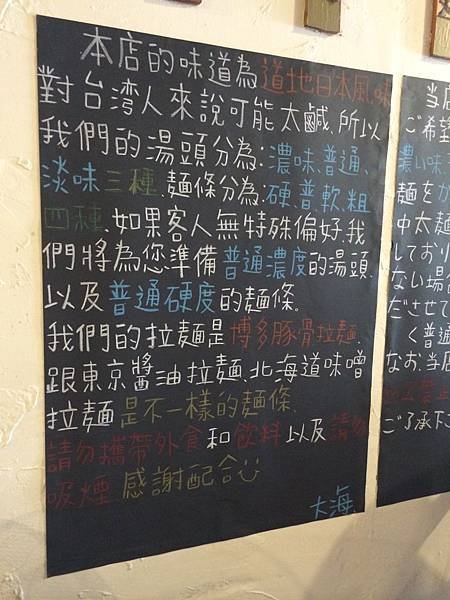 本店的味道為道地日本風味
對台湾人來說可能太鹹、所以
我們的湯頭分為:濃味、普通、
淡味三種.麵條分為:硬、普、軟、粗
四種.如果客人無特殊偏好、我
們將為您準備普通濃度的湯頭、
以及普通硬度的麵條。
我們的拉麵是博多豚骨拉麵、
跟東京醬油拉麵、北海道味噌
拉麵是不一樣的麵條、
請勿攜帶外食和飲料以及請勿
吸煙 感謝配合
大海
当店
ご希望
濃い味、
麺をか
中太麺
しており
ない場合
ださせて
く普通
なお、当店
ご了承下さ